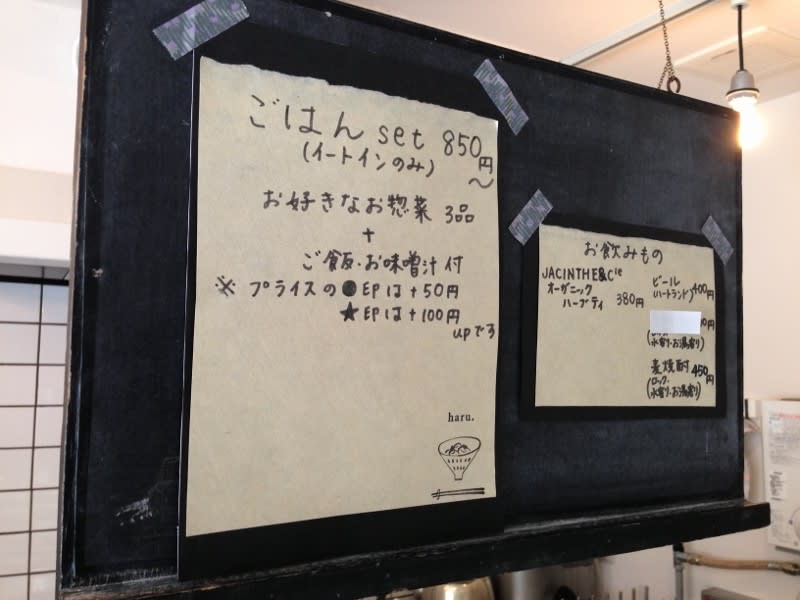 ごはん set 850円〜
(イートインのみ)
お好きなお惣菜 3品
+
ご飯・お味噌汁付
※ プライスの●EPは+50円
★EPは+100円
upです
haru.
お飲みもの
JACINTHE&Cie
オーガニック
ハーブティ 380円
ビール
(ハートランド) 400円
0円
水割り・お湯割り)
麦焼酎 450円
(ロック・
水割り・お湯割り)